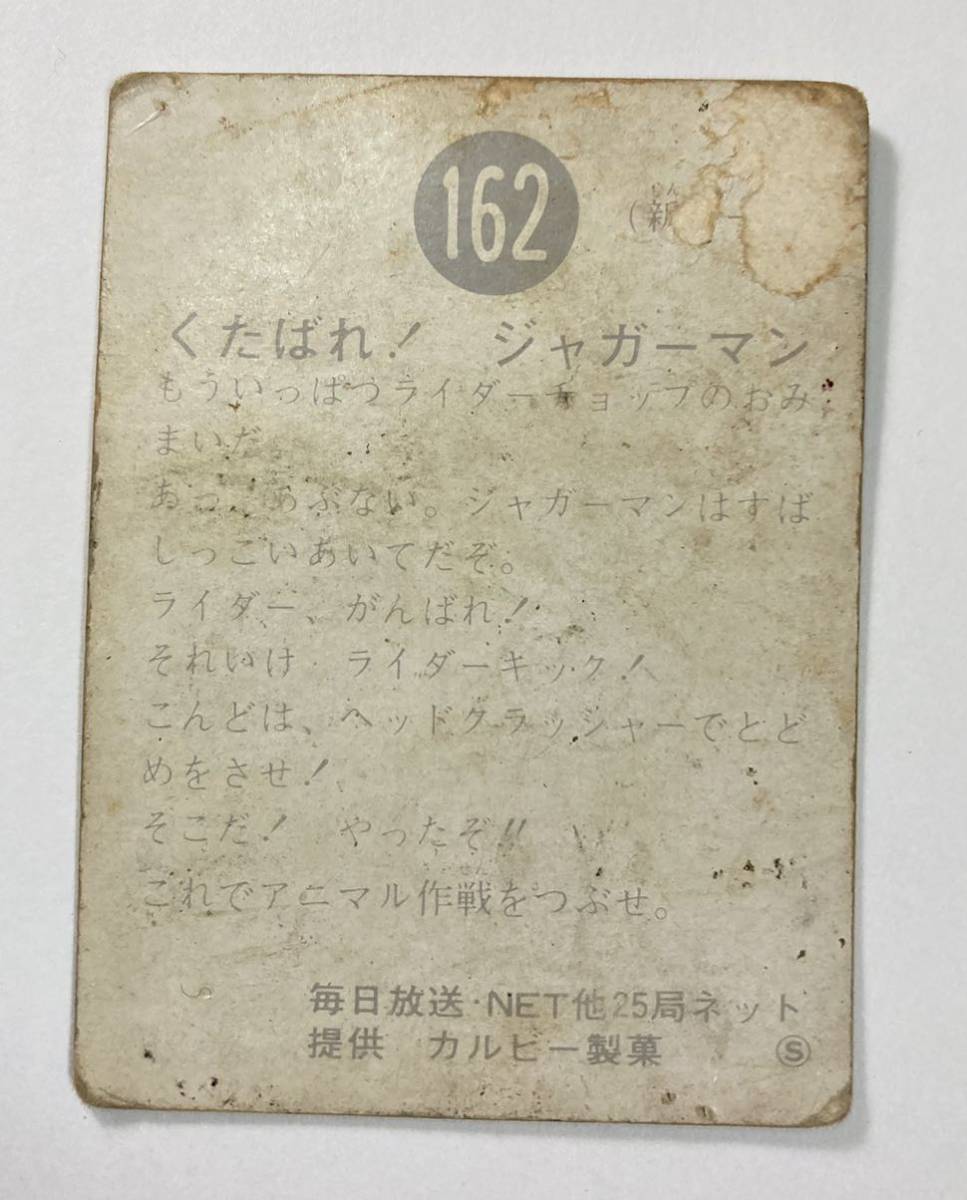 162
(新
くたばれ! ジャガーマン
もういっぱつライダーチョップのおみ
まいだ。
あっ、あぶない。ジャガーマンはすば
しっごいあいてだぞ。
ライダー、がんばれ!
それいけ ライダーキック!
こんどは、ヘッドクラッシャーでとど
めをさせ!
そこだ! やったぞ!!
これでアニマル作戦をつぶせ。
毎日放送・NET他25局ネット
提供 カルビー製菓 Ⓢ